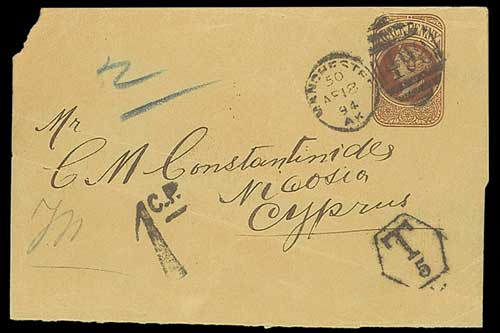 2
MANCHESTER
50
AP 18
94
AK
HALFPENNY
Mr
C M Constantinides
Nicosia
Cyprus
1 C.P.
T
5